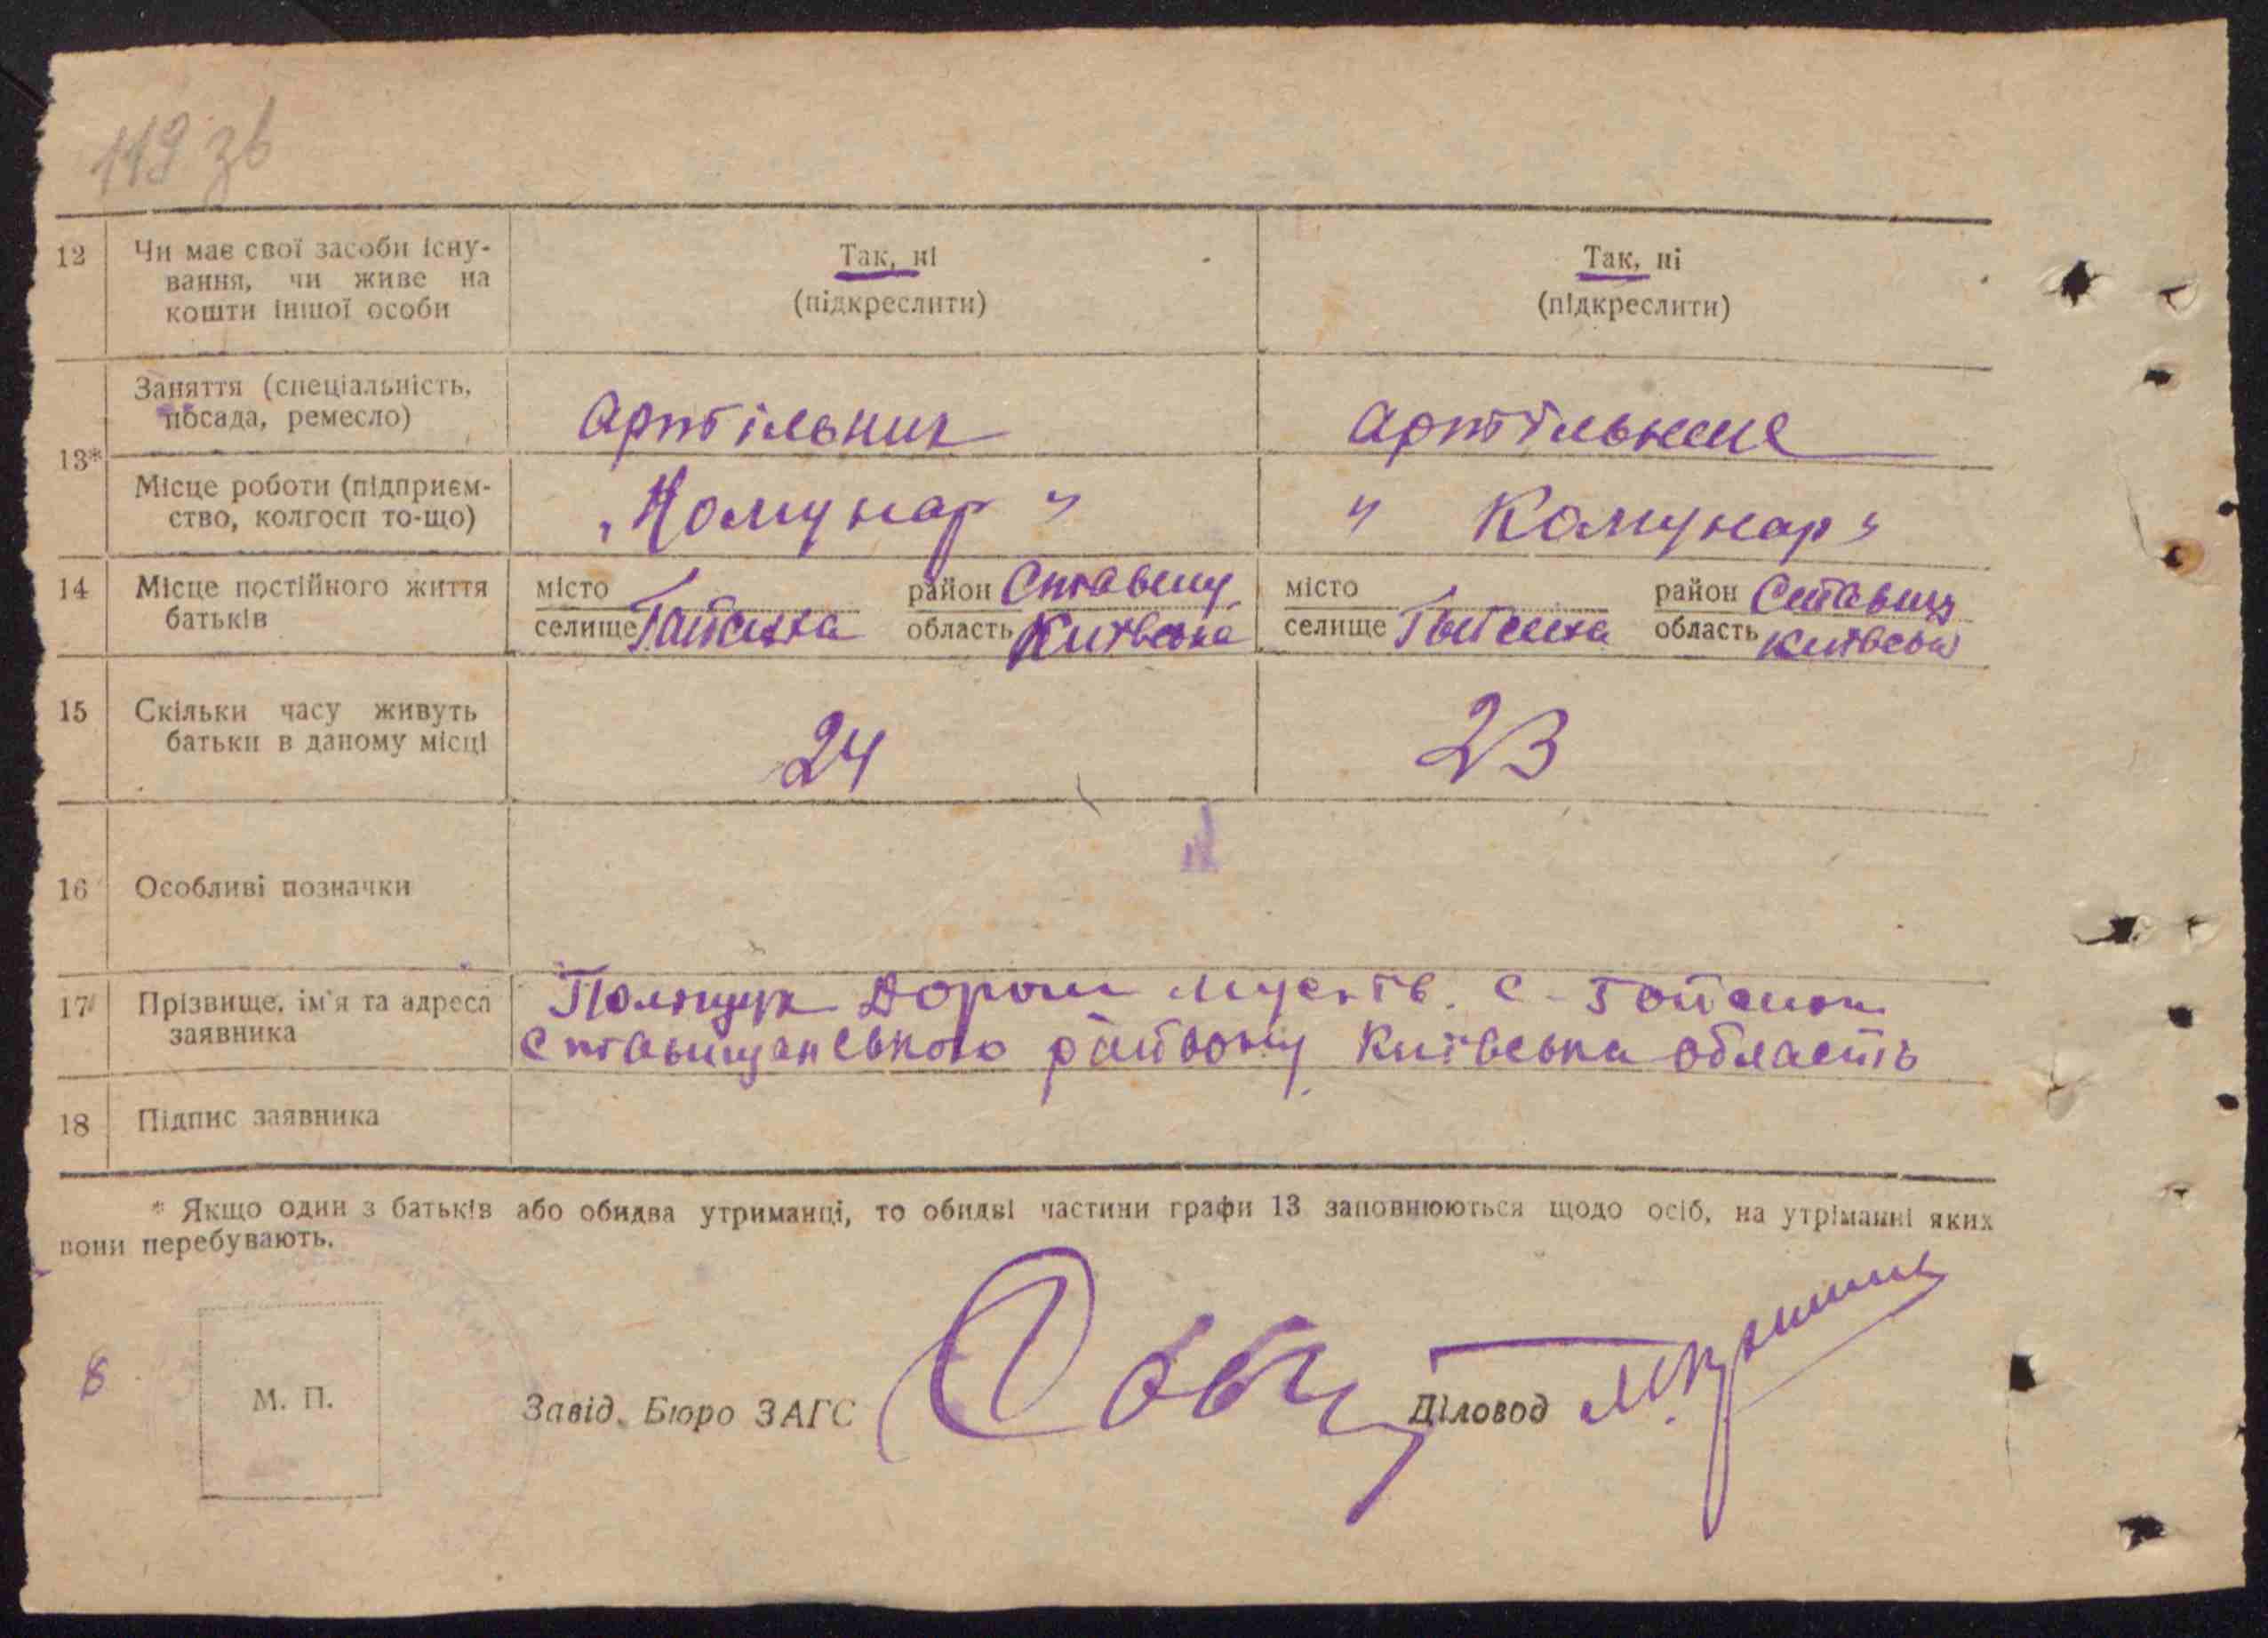 119 зв
12 Чи має свої засоби існу-
вання, чи живе на
кошти іншої особи
Так, ні
(підкреслити)
Так, ні
(підкреслити)
13*
Заняття (спеціальність,
посада, ремесло)
Артільник
Артільниця
Місце роботи (підприєм-
ство, колгосп то-що)
„Комунар"
" Комунар"
14 Місце постійного життя
батьків
місто
селище Гайсиха
район Ставищ.
область Київська
місто
селище Гайсиха
район Ставищ
область Київська
15 Скільки часу живуть
батьки в даному місці
24
23
16 Особливі позначки
17 Прізвище, ім'я та адреса
заявника
Поліщук Дорош с.
Ставищанського району Київська область
18 Підпис заявника
* Якщо один з батьків або обидва утриманці, то обидві частини графи 13 заповнюються щодо осіб, на утріманні яких
вони перебувають.
8
М. П.
Завід. Бюро ЗАГС
Діловод